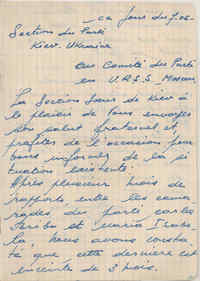 ce jour du 7.06-
Section du Parti
Kiev. Ukraine
au Comité du Parti
en U.R.S.S Moscou
La Section Sous de Kiev a
le plaisir de vous envoyer
son salut fraternel et
profiter de l'occasion pour
vous informer de la si
tuation existente.
Après plusieur mois de
rapports entre les cama
rades du parti Carlos
et Maria Isabe
la, nous avons consta
té que cette derniere est
enceinte de 3 mois.